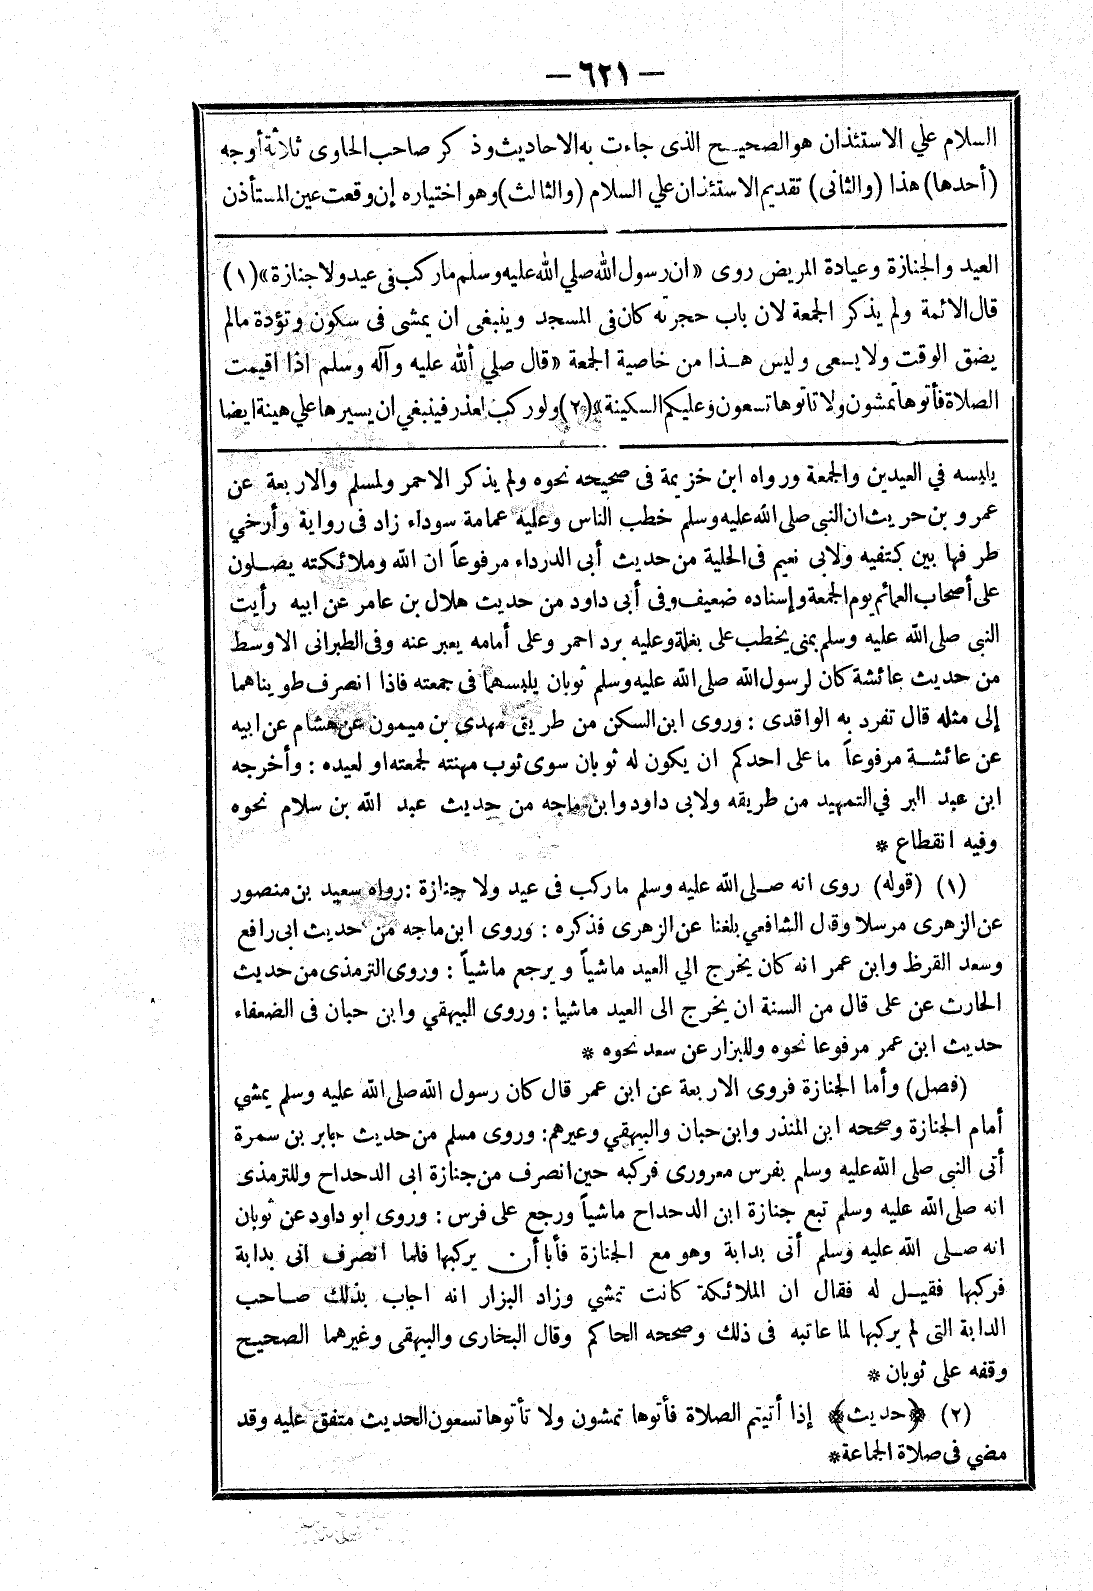 — ٦٢١ —
السلام علي الاستئذان هو الصحيح الذى جاءت به الاحاديث وذكر صاحب الحاوى ثلاثة أوجه
(أحدها) هذا (والثانى) تقديم الاستئذان علي السلام (والثالث) وهو اختياره إن وقعت عين المستأذن
العيد والجنازة وعيادة المريض روى «ان رسول الله صلي الله عليه وسلم ما ركب فى عيد ولا جنازة» (١)
قال الائمة ولم يذكر الجمعة لان باب حجرته كان فى المسجد وينبغى ان يمشى فى سكون وتؤدة مالم
يضق الوقت ولا يسعى وليس هذا من خاصية الجمعة «قال صلي ألله عليه وآله وسلم اذا اقيمت
الصلاة فأتوها تمشون ولا تاتوها تسعون وعليكم السكينة» (٢) ولو ركب لعذر فينبغي ان يسيرها علي هينة ايضا
يلبسه في العيدين والجمعة ورواه ابن خزيمة فى صحيحه نحوه ولم يذكر الاحمر ولمسلم والاربعة عن
عمرو بن حريث ان النبي صلى الله عليه وسلم خطب الناس وعليه عمامة سوداء زاد فى رواية وأرخي
طرفها بين كتفيه ولابى نعيم فى الحلية من حديث أبى الدرداء مرفوعاً ان الله وملائكته يصلون
على أصحاب العمائم يوم الجمعة وإسناده ضعيف وفى أبى داود من حديث هلال بن عامر عن ابيه رأيت
النبى صلى الله عليه وسلم بمنى يخطب على بغلة وعليه برد احمر وعلى أمامه يعبر عنه وفى الطبرانى الاوسط
من حديث عائشة كان لرسول الله صلى الله عليه وسلم ثوبان يلبسهما فى جمعته فاذا انصرف طويناهما
إلى مثله قال تفرد به الواقدى : وروى ابن السكن من طريق مهدى بن ميمون عن هشام عن ابيه
عن عائشة مرفوعاً ما على احدكم ان يكون له ثوبان سوى ثوب مهنته لجمعته او لعيده : وأخرجه
ابن عبد البر في التمهيد من طريقه ولابى داود وابن ماجه من حديث عبد الله بن سلام نحوه
وفيه انقطاع *
(١) (قوله) روى انه صلى الله عليه وسلم ما ركب فى عيد ولا جنازة : رواه سعيد بن منصور
عن الزهرى مرسلا وقال الشافعي بلغنا عن الزهرى فذكره : وروى ابن ماجه من حديث ابى رافع
وسعد القرظ وابن عمر انه كان يخرج الي العيد ماشياً ويرجع ماشياً : وروى الترمذى من حديث
الحارث عن على قال من السنة ان يخرج الى العيد ماشيا : وروى البيهقي وابن حبان فى الضعفاء
حديث ابن عمر مرفوعا نحوه وللبزار عن سعد نحوه *
(فصل) وأما الجنازة فروى الاربعة عن ابن عمر قال كان رسول الله صلى الله عليه وسلم يمشي
أمام الجنازة وصححه ابن المنذر وابن حبان والبيهقي وغيرهم : وروى مسلم من حديث جابر بن سمرة
أتى النبى صلى الله عليه وسلم بفرس معرورى فركبه حين انصرف من جنازة ابى الدحداح وللترمذى
انه صلى الله عليه وسلم تبع جنازة ابن الدحداح ماشياً ورجع على فرس : وروى ابو داود عن ثوبان
انه صلى الله عليه وسلم أتى بدابة وهو مع الجنازة فأبا أن يركبها فلما انصرف اتى بدابة
فركبها فقيل له فقال ان الملائكة كانت تمشي وزاد البزار انه اجاب بذلك صاحب
الدابة التى لم يركبها لما عاتبه فى ذلك وصححه الحاكم وقال البخارى والبيهقى وغيرهما الصحيح
وقفه على ثوبان *
(٢) ﴿حديث﴾ إذا أتيتم الصلاة فأتوها تمشون ولا تأتوها تسعون الحديث متفق عليه وقد
مضي فى صلاة الجماعة *